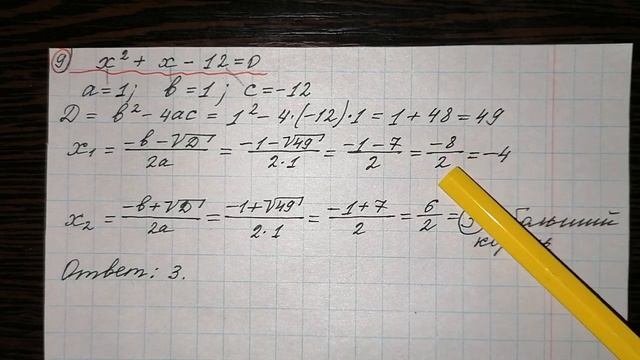 9 x² + x - 12 = 0
a = 1; b = 1; c = -12
D = b² - 4ac = 1² - 4·(-12)·1 = 1 + 48 = 49
x₁ = (-b - √D)/(2a) = (-1 - √49)/(2·1) = (-1 - 7)/2 = -8/2 = -4
x₂ = (-b + √D)/(2a) = (-1 + √49)/(2·1) = (-1 + 7)/2 = 6/2 =
Ответ: 3.